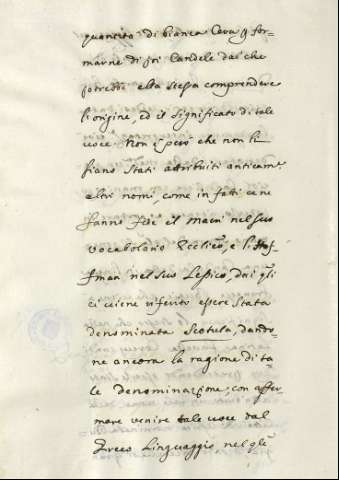 quantità di bianca Cera p for=
marne di poi Candele dal che
potrebbe ella stessa comprendere
l'origine, ed il significato di tale
voce. Non è però che non li
siano stati attribuiti anticam.e
altri nomi, come in fatti ce ne
fanno fede il Macri nel suo
vocabolario Eccl.co, e l'Hof=
fman nel suo Lessico, dai q.li
ci viene riferito essere stata
denominata Scotula, dando=
ne ancora la ragione di ta
le denominazione, con affer
mare venire tale voce dal
Greco Linguaggio nel q.le